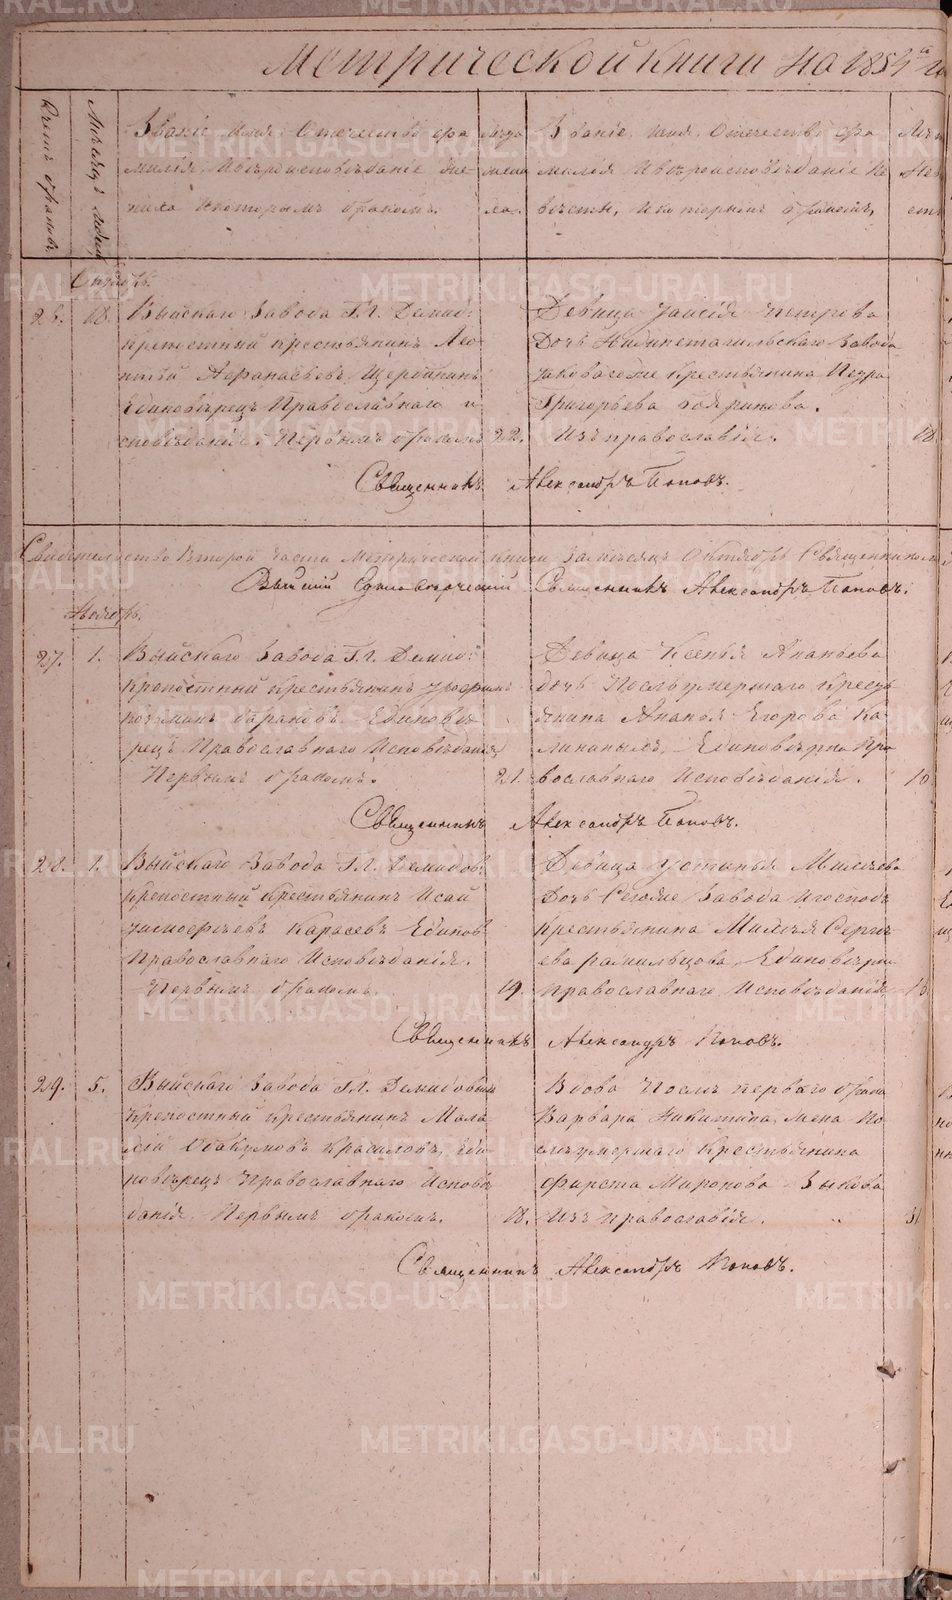 Метрической книги на 1854 го
Счетъ браковъ.
Месяцъ и день
Званіе имя Отечество фа
милія, и вѣроисповѣданіе же
ниха и которымъ бракомъ.
Лета
жени
ха.
Званіе имя, Отечество, фа
милія и вѣроисповѣданіе не
вѣсты, и которымъ бракомъ,
Лета
Нев
ест
Октябрь.
18. Выйскаго Завода Гг. Демид:
крепостный крестьянинъ Лео
нтій Афанасьевъ Щербининъ
Единовѣрецъ Православнаго и
споведанія. Первымъ бракомъ 22.
Девица
Дочь Нижнетагильскаго Завода
крестьянина Петра
Григорьева
Изъ православія. 18
Священникъ Александръ Поповъ.
второй части Метрической книги за месяцъ Октябрь Священникомъ
Выйскій Единоверческій Священникъ Александръ Поповъ.
Ноябрь.
27. 1. Выйскаго Завода Гг. Демид:
Крепостный Крестьянинъ
Единове
рецъ Православнаго Исповѣданія
Первымъ бракомъ. 21.
Девица Ксенья Ананьева
дочь Послѣ умершаго Кресть
янина Ананья Егорова Ка
Единоверка Пра
вославнаго Исповѣданія. 18
Священникъ Александръ Поповъ.
28. 1. Выйскаго Завода Гг. Демидов:
Крепостный Крестьянинъ Исай
Тимофеевъ Карасевъ Единов
Православнаго Исповѣданія.
Первымъ бракомъ. 19
Девица Устинья Милеева
Дочь Сегоже Завода и господъ
Крестьянина Милея Серге
ева Единоверка
православнаго Исповѣданія 18
Священникъ Александръ Поповъ.
29. 5. Выйскаго Завода Гг. Демидовыхъ
Крепостный Крестьянинъ Мала
фей Абакумовъ Красиловъ, Еди
новѣрецъ Православнаго Исповѣ
данія. Первымъ бракомъ. 18.
Вдова После перваго брака
Варвара Никитина, жена По
слѣ умершаго Крестьянина
Фирста Миронова Быкова
Изъ православія. 31
Священникъ Александръ Поповъ.
METRIKI.GASO-URAL.RU